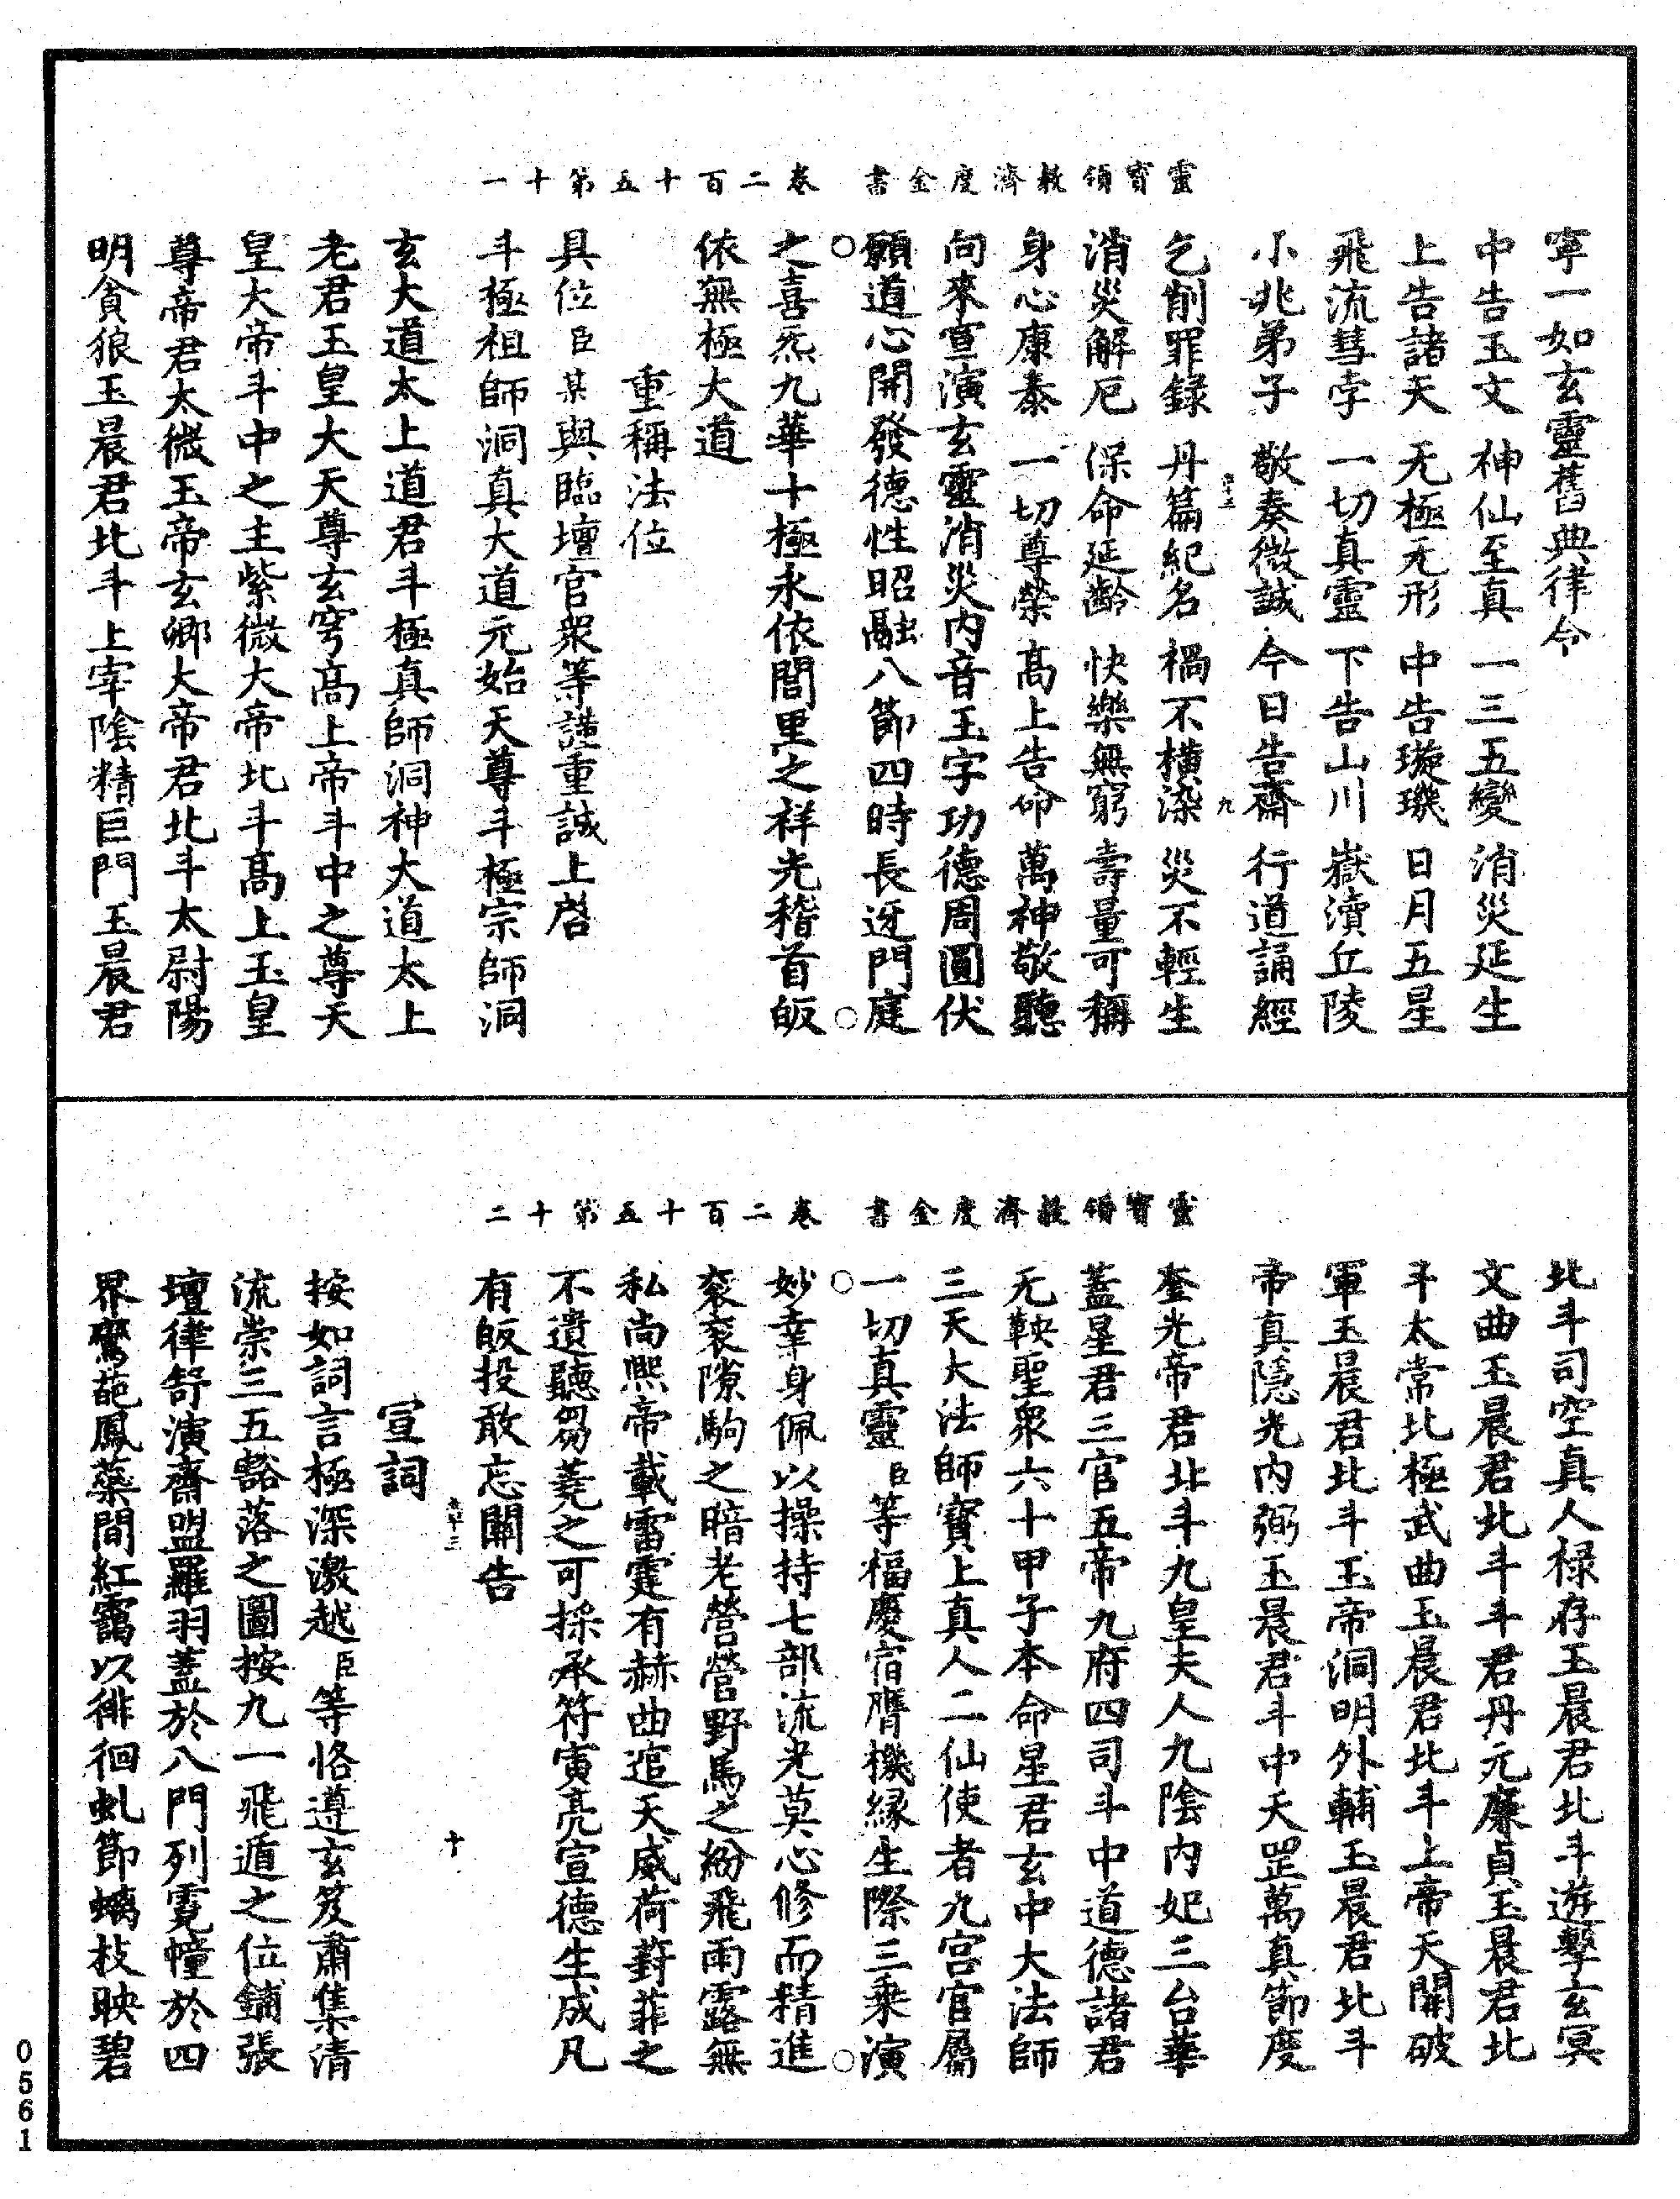 靈寶領教濟度金書　卷二百十五第十一
寧一如玄靈舊典律令
中告玉文　神仙至真　一三五變　消災延生
上告諸天　无極无形　中告璇璣　日月五星
飛流彗孛　一切真靈　下告山川　嶽瀆丘陵
小兆弟子　敬奏微誠　今日告齋　行道誦經
九
乞削罪録　丹篇紀名　禍不橫染　災不輕生
消災解厄　保命延齡　快樂無窮　壽量可稱
身心康泰　一切尊榮　高上告命　萬神敬聽
向來宣演玄靈消災内音玉字功德周圓伏
願道心開發德性昭融八節四時長迓門庭
之喜炁九華十極永依閭里之祥光稽首皈
依無極大道
重稱法位
具位臣某與臨壇官衆等謹重誠上啓
斗極祖師洞真大道元始天尊斗極宗師洞
玄大道太上道君斗極真師洞神大道太上
老君玉皇大天尊玄穹高上帝斗中之尊天
皇大帝斗中之主紫微大帝北斗高上玉皇
尊帝君太微玉帝玄卿大帝君北斗太尉陽
明貪狼玉晨君北斗上宰陰精巨門玉晨君
靈寶領教濟度金書　卷二百十五第十二
北斗司空真人禄存玉晨君北斗遊擊玄冥
文曲玉晨君北斗斗君丹元廉貞玉晨君北
斗太常北極武曲玉晨君北斗上帝天開破
軍玉晨君北斗玉帝洞明外輔玉晨君北斗
帝真隱光内弼玉晨君斗中天罡萬真節度
奎光帝君北斗九皇夫人九陰内妃三台華
蓋星君三官五帝九府四司斗中道德諸君
无鞅聖衆六十甲子本命星君玄中大法師
三天大法師寶上真人二仙使者九宫官屬
一切真靈臣等福慶宿膺機緣生際三乘演
妙幸身佩以操持七部流光莫心修而精進
衮衮隙駒之暗老營營野馬之紛飛雨露無
私尚熙帝載雷霆有赫曲逭天威荷葑菲之
不遺聽芻蕘之可採承符寅亮宣德生成凡
有皈投敢忘關告
十
宣詞
按如詞言極深激越臣等恪遵玄笈肅集清
流崇三五豁落之圖按九一飛遁之位鋪張
壇律舒演齋盟羅羽蓋於八門列霓幢於四
界鸞葩鳳蘂間紅靄以徘徊虬節螭枝映碧
0561